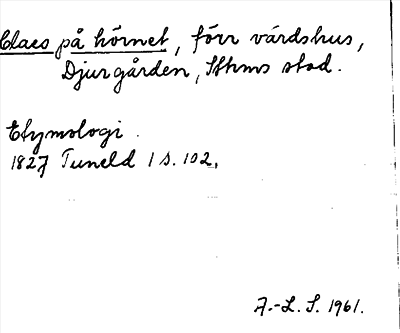 Claes på hörnet, förr värdshus,
Djurgården, Sthms stad.
Etymologi.
1827 Tuneld I s. 102,
A.-L. S. 1961.